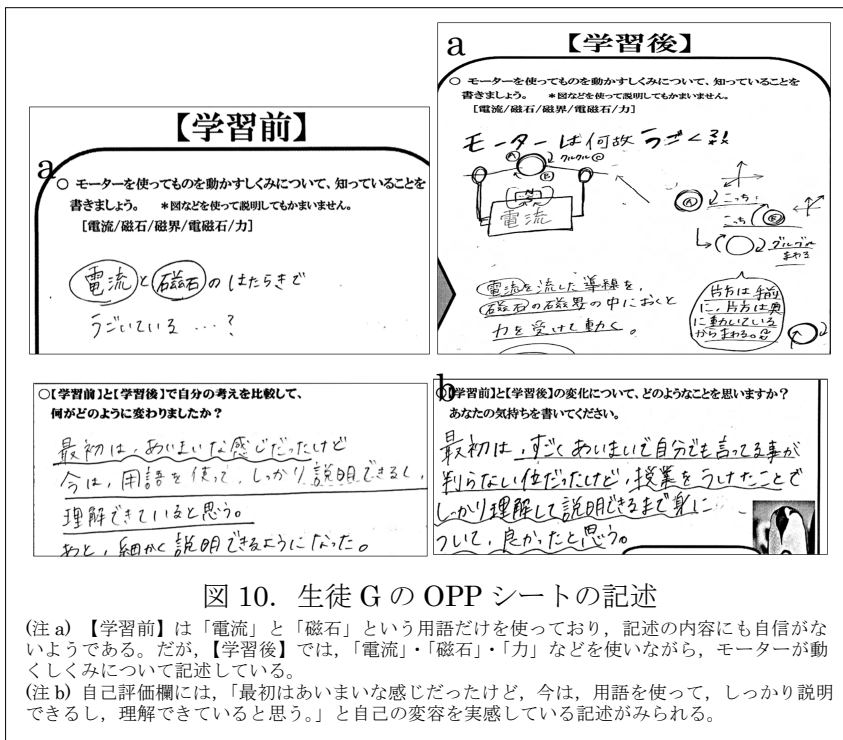 a
【学習前】
○ モーターを使ってものを動かすしくみについて、知っていることを
書きましょう。 *図などを使って説明してもかまいません。
[電流/磁石/磁界/電磁石/力]
電流と磁石のはたらきで
うごいている …?
a
【学習後】
○ モーターを使ってものを動かすしくみについて、知っていることを
書きましょう。 *図などを使って説明してもかまいません。
[電流/磁石/磁界/電磁石/力]
モーターは何故うごく?!
A
クルクル
B
N
電流
A こっち
こっち B
グルグル
まわる
電流を流した導線を、
磁石の磁界の中におくと
力を受けて動く。
片方は手前
に、片方は奥
に動いている
からまわる。
○【学習前】と【学習後】で自分の考えを比較して、
何がどのように変わりましたか?
最初は、あいまいな感じだったけど
今は、用語を使って、しっかり説明できるし、
理解できていると思う。
あと、細かく説明できるようになった。
b
○【学習前】と【学習後】の変化について、どのようなことを思いますか?
あなたの気持ちを書いてください。
最初は、すごくあいまいで自分でも言ってる事が
判らない位だったけど、授業をうけたことで
しっかり理解して説明できるまで身に
ついて、良かったと思う。
図 10. 生徒 G の OPP シートの記述
(注 a) 【学習前】は「電流」と「磁石」という用語だけを使っており,記述の内容にも自信がな
いようである。だが,【学習後】では,「電流」・「磁石」・「力」などを使いながら,モーターが動
くしくみについて記述している。
(注 b) 自己評価欄には,「最初はあいまいな感じだったけど,今は,用語を使って,しっかり説明
できるし,理解できていると思う。」と自己の変容を実感している記述がみられる。